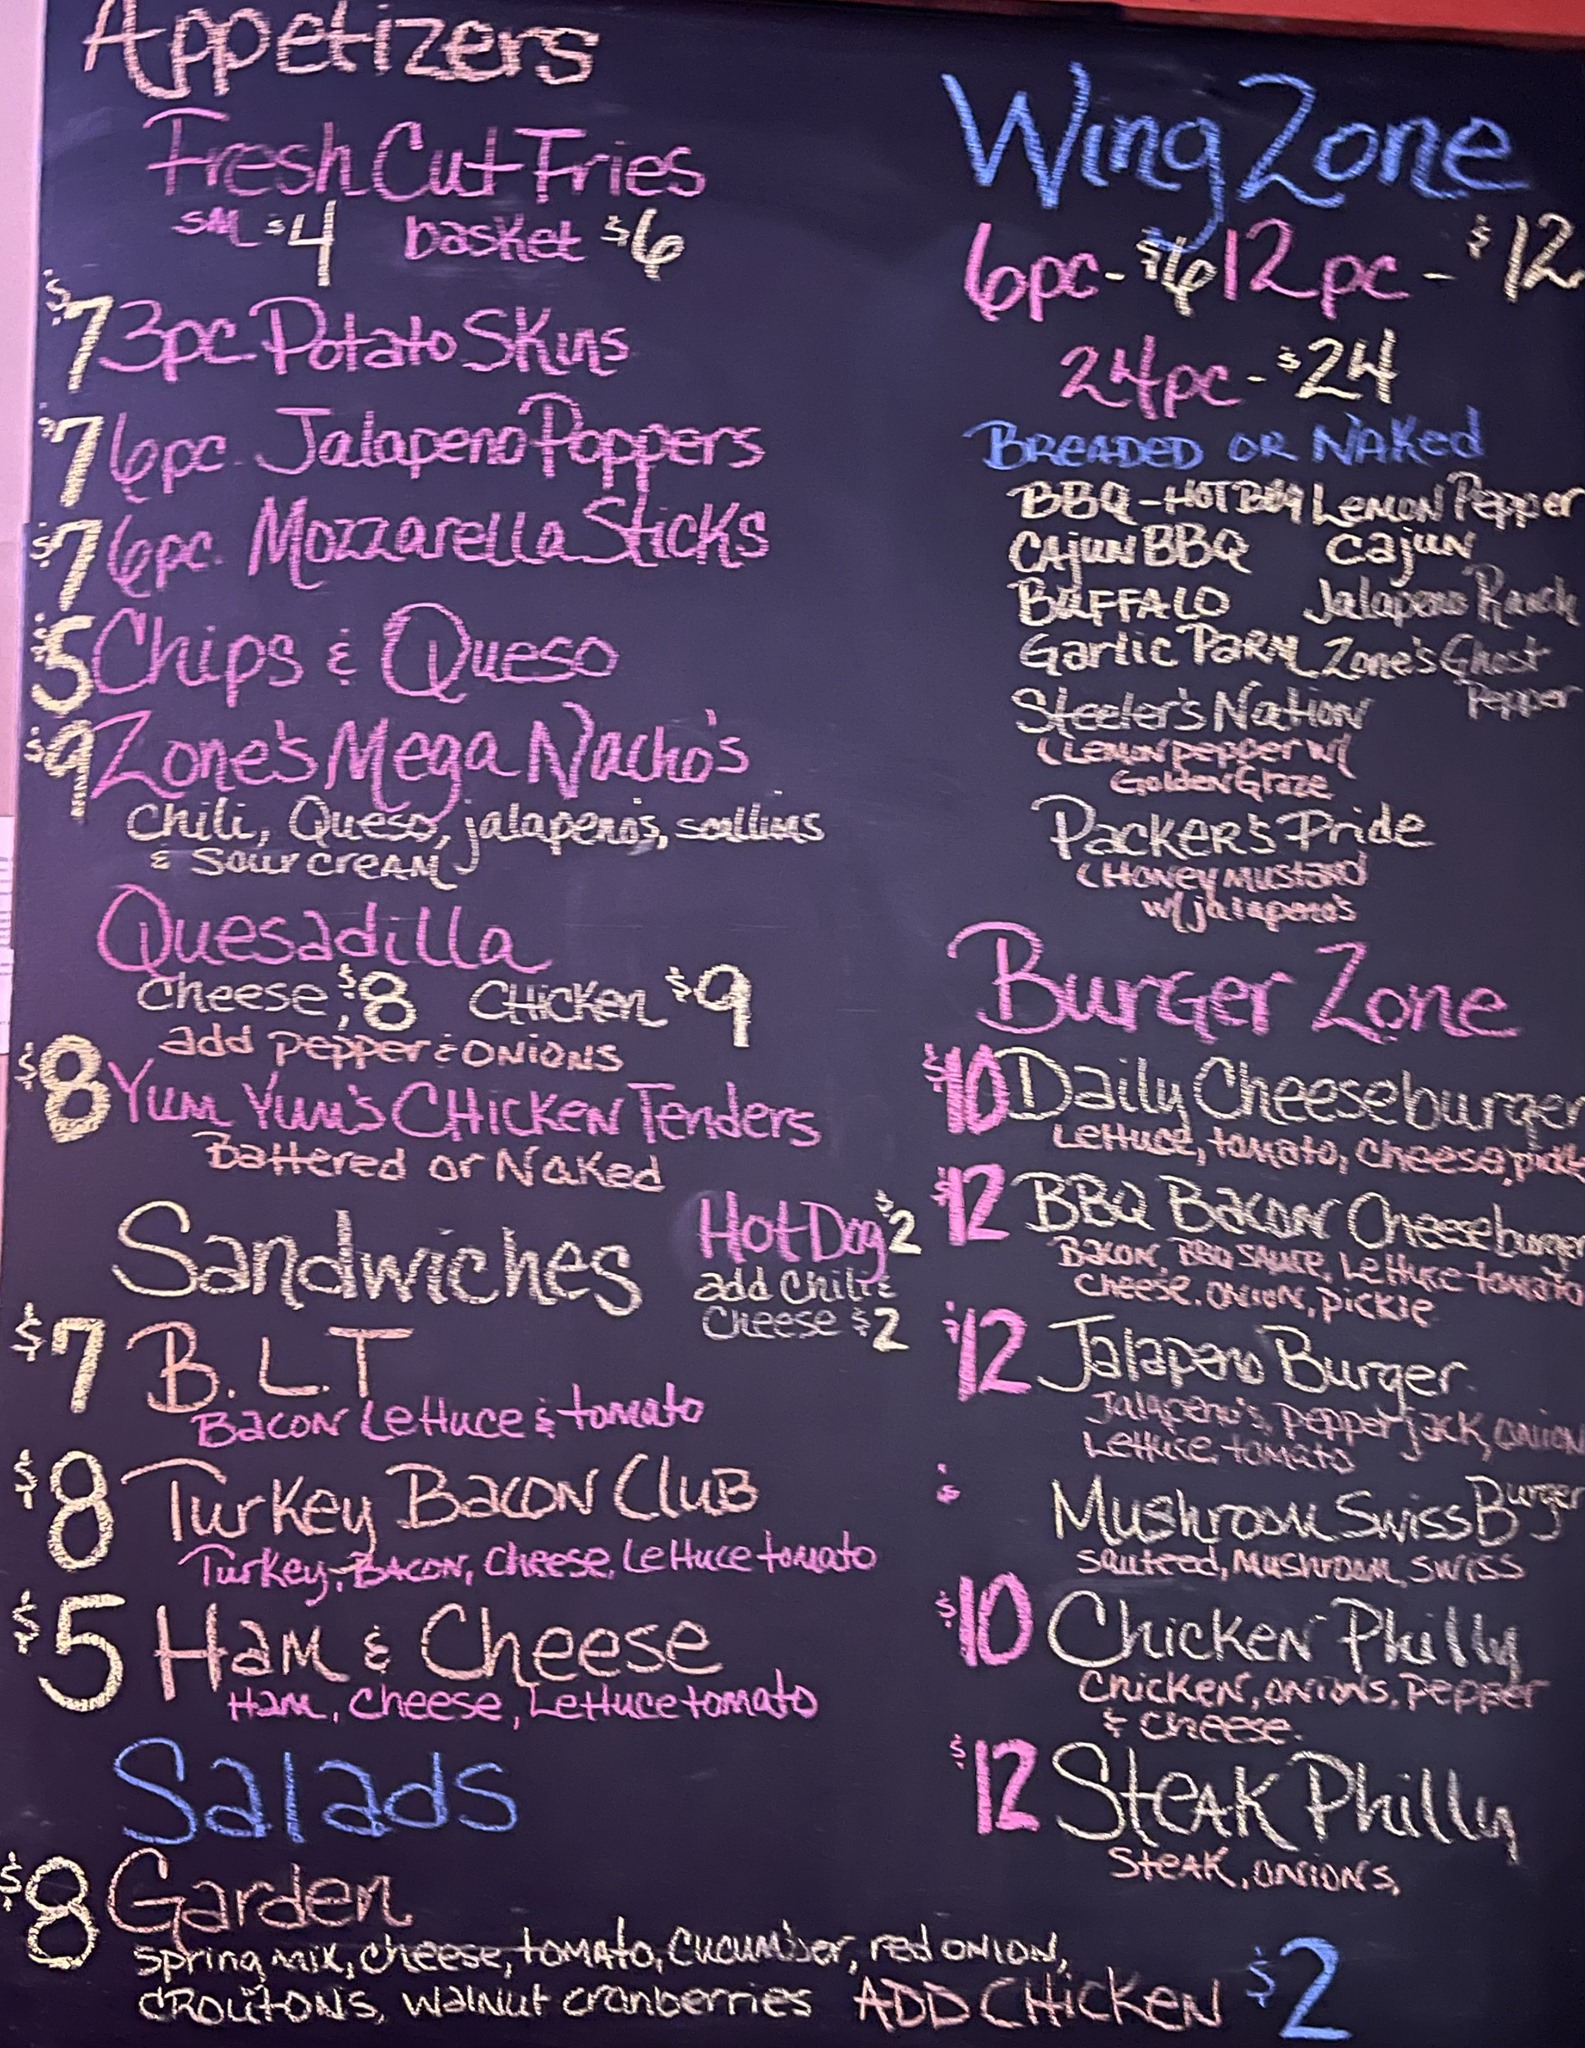 Appetizers
Fresh Cut Fries
SM $4 basket $6
$7 3pc Potato Skins
$7 6pc. Jalapeno Poppers
$7 6pc. Mozzarella Sticks
$5 Chips & Queso
$9 Zone's Mega Nacho's
Chili, Queso, jalapeno's, scallions
& Sour cream
Quesadilla
Cheese, $8 Chicken $9
add pepper & onions
$8 Yum Yum's Chicken Tenders
Battered or Naked
Sandwiches
Hot Dog $2
add Chili &
Cheese $2
$7 B.L.T
Bacon Lettuce & tomato
$8 Turkey Bacon Club
Turkey, Bacon, Cheese, Lettuce tomato
$5 Ham & Cheese
Ham, Cheese, Lettuce tomato
Salads
$8 Garden
Spring mix, cheese, tomato, cucumber, red onion,
croutons, walnut cranberries ADD Chicken $2
Wing Zone
6pc - $6 12pc - $12
24pc - $24
Breaded or Naked
BBQ - HOT BBQ Lemon Pepper
Cajun BBQ Cajun
Buffalo Jalapeno Ranch
Garlic Parm Zone's Ghost
Pepper
Steeler's Nation
(Lemon pepper w/
Golden Glaze
Packer's Pride
(Honey Mustard
w/ jalapeno's
Burger Zone
$10 Daily Cheeseburger
Lettuce, tomato, cheese,
$12 BBQ Bacon Cheeseburger
Bacon, BBQ Sauce, Lettuce tomato
cheese. onion, pickle
$12 Jalapeno Burger
Jalapeno's, pepper jack, onion
Lettuce, tomato
$ Mushroom Swiss Burger
sauteed, mushroom, swiss
$10 Chicken Philly
Chicken, onions, pepper
& cheese.
$12 Steak Philly
Steak, onions,